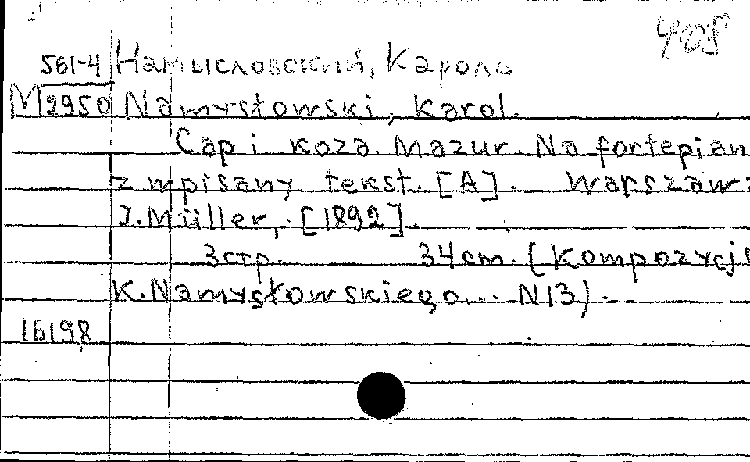 405
561-4 Намысловский, Кароль
M 2950 Namysłowski, Karol.
Cap i koza. Mazur. Na fortepian
z wpisany tekst. [A]. — Warszawa
J. Müller, [1892].
3 стр. 34 cm. (Kompozycje
K. Namysłowskiego... N 13).
16198